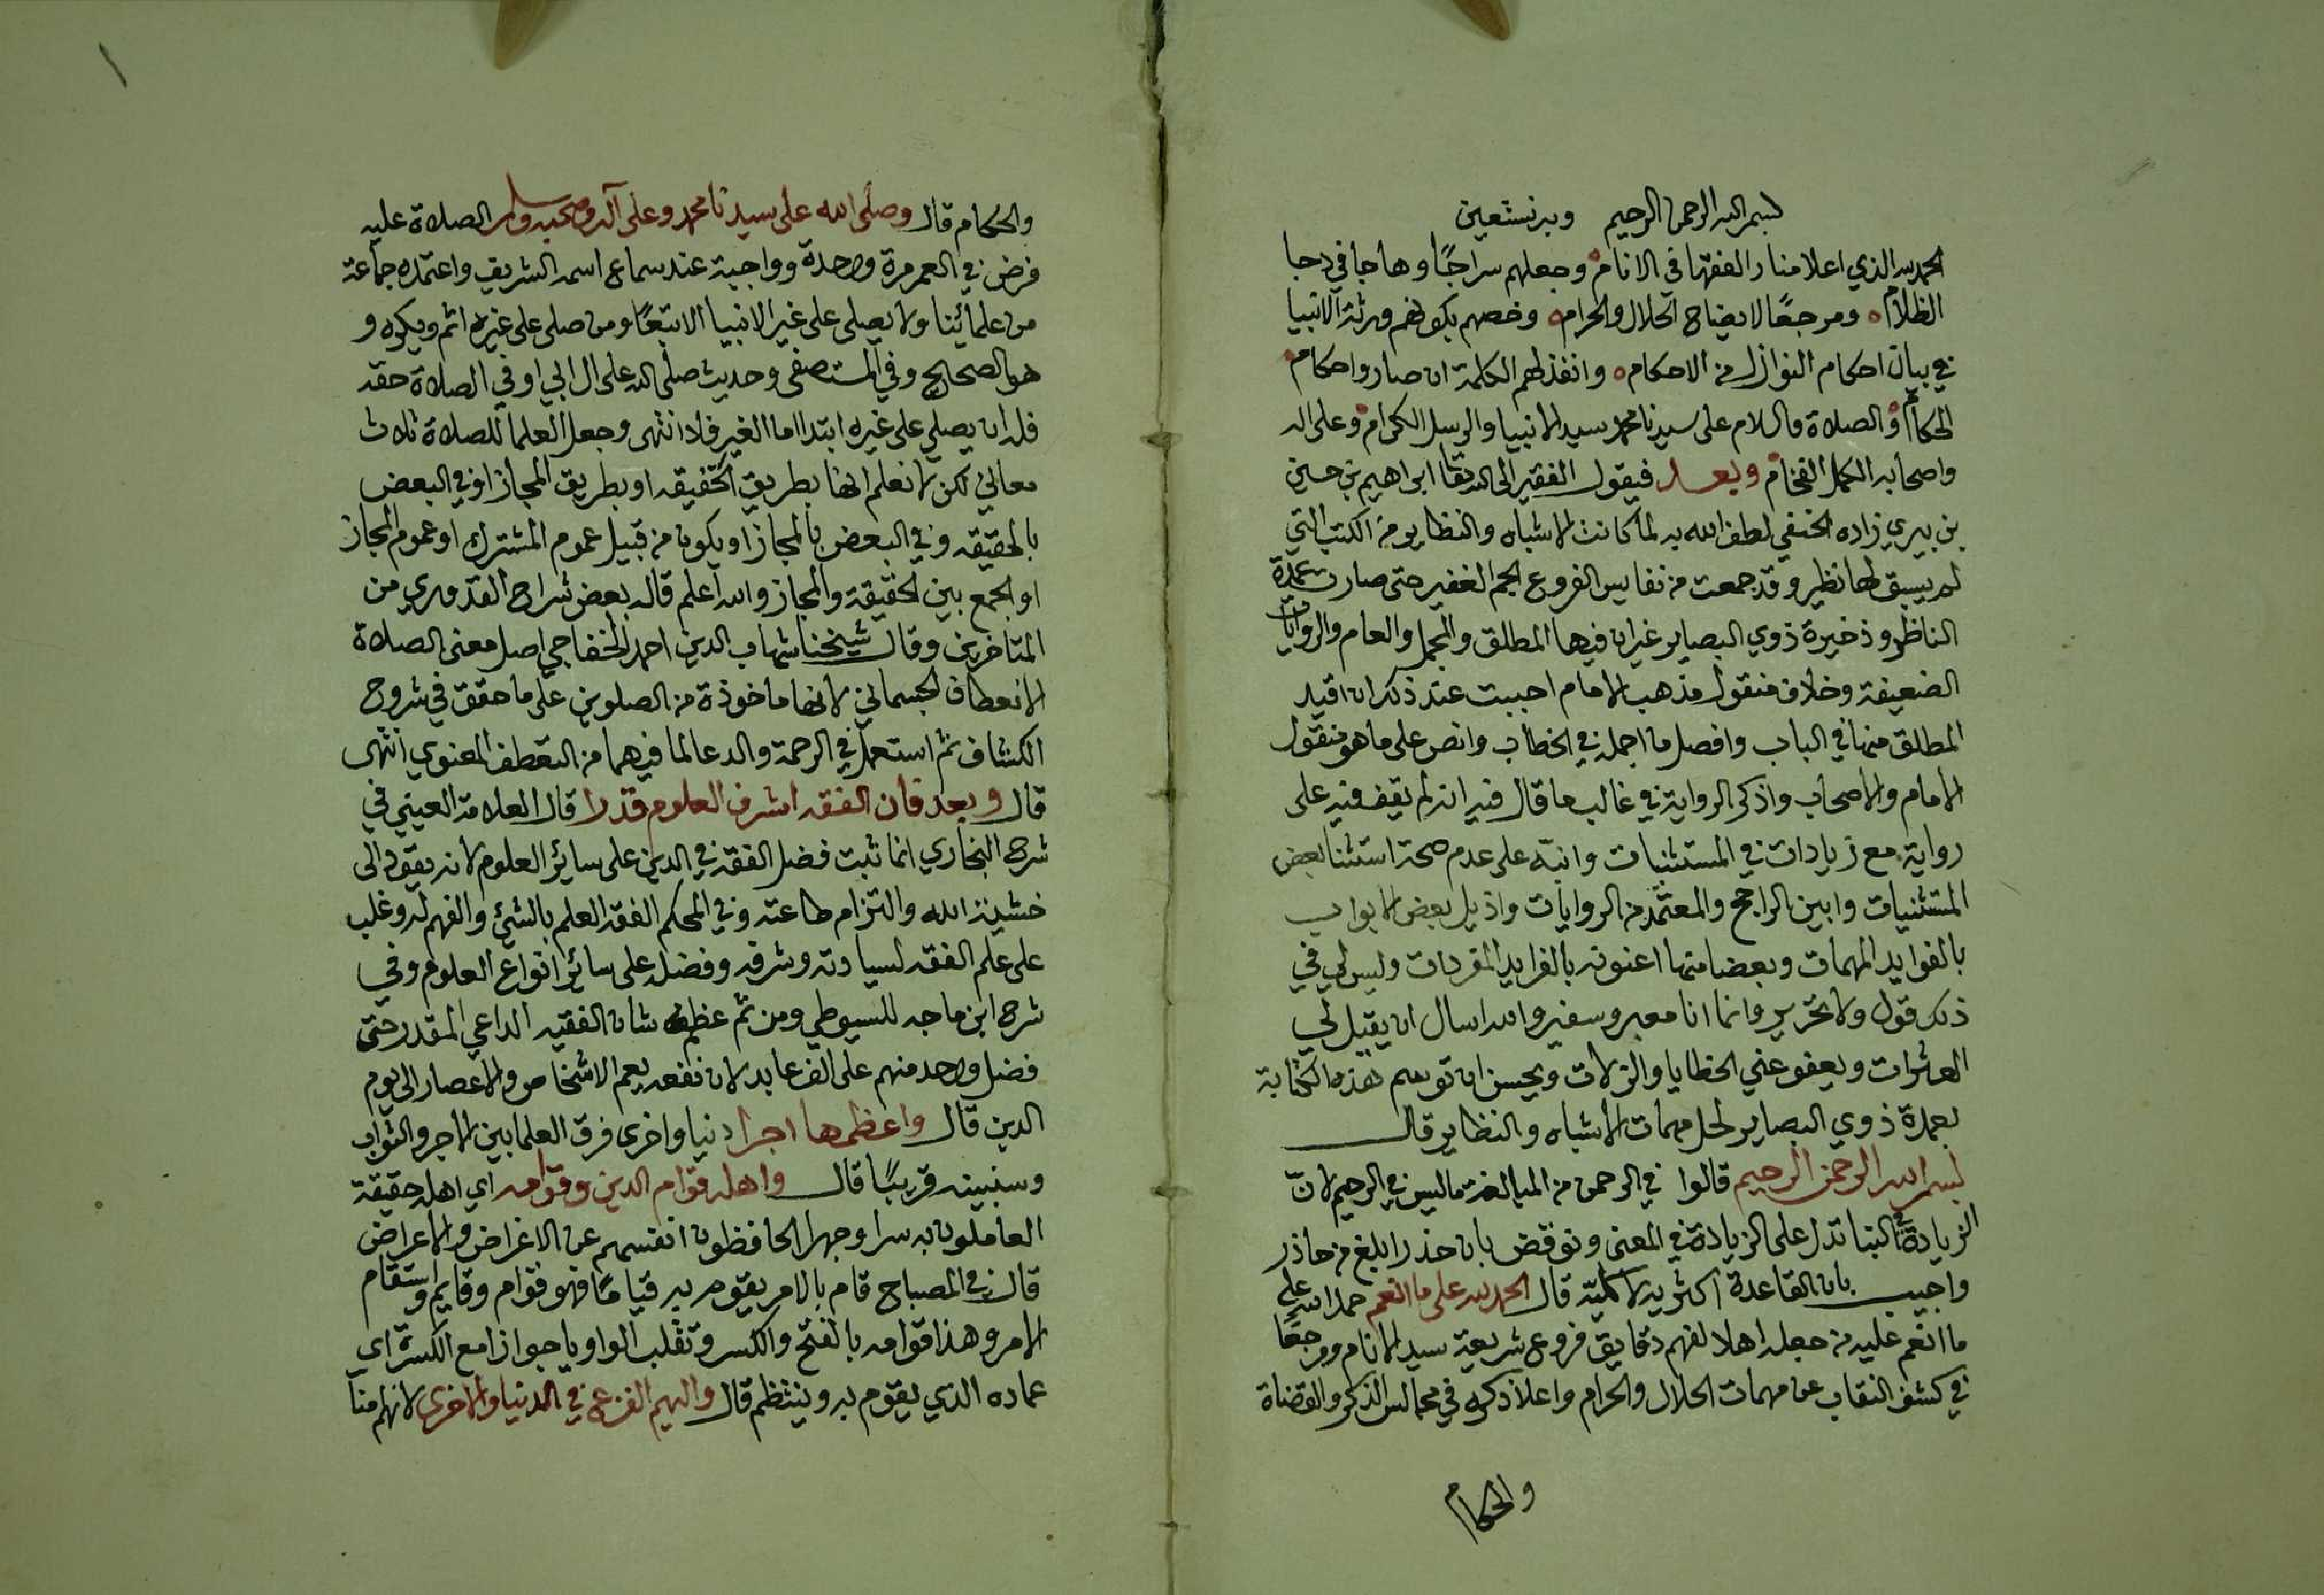 بسم الله الرحمن الرحيم وبه نستعين
الحمد لله الذي اعلا منار الفقها في الانام وجعلهم سراجًا وهاجا في دجا
الظلام ومرجعًا لايضاح الحلال والحرام وخصهم بكونهم ورثة الانبيا
في بيان احكام النوازل من الاحكام وانفذ لهم الكلمة ان صاروا حكام
الحكام والصلاة والسلام على سيدنا محمد سيد الانبيا والرسل الكرام وعلى اله
واصحابه الكمل الفخام وبعد فيقول الفقير الى الله تعا ابراهيم بن حسين
بن بيري زاده الحنفي لطف الله به لما كانت الاشباه والنظاير من الكتب التي
لم يسبق لها نظير وقد جمعت من نفايس الفروع الجم الغفير حتى صارت عمدة
الناظر وذخيرة ذوي البصاير غير ان فيها المطلق والمجمل والعام والروايات
الضعيفة وخلاف منقول مذهب الامام احببت عند ذلك ان اقيد
المطلق منها في الباب وافصل ما اجمله في الخطاب وانص على ما هو منقول
الامام والاصحاب واذكر الرواية في غالب ما قال فيه انه لم يقف فيه على
رواية مع زيادات في المستثنيات وانبّه على عدم صحة استثنا بعض
المستثنيات وابين الراجح والمعتمد من الروايات واذيل بعض الابواب
بالفوايد المهمات وبعضا منها اعنونه بالفرايد المفردات وليس لي في
ذلك قول ولا تحرير وانما انا معبر وسفير والله اسال ان يقبل لي
العثرات ويعفو عني الخطايا والزلات ويحسن ان توسم هذه الكتابة
بعمدة ذوي البصاير لحل مهمات الاشباه والنظاير قال
بسم الله الرحمن الرحيم قالوا في الرحمن من المبالغة ما ليس في الرحيم لانّ
الزيادة في البنا تدل على الزيادة في المعنى ونوقض بان حذر ابلغ من حاذر
واجيب بان القاعدة اكثرية لا كليّة قال الحمد لله على ما انعم حمد الله على
ما انعم عليه من جعله اهلا لفهم دقايق فروع شريعة سيد الانام ومرجعًا
في كشف النقاب عن مهمات الحلال والحرام واعلا ذكره في مجالس الذكر والقضاة
والحكام
والحكام قال وصلى الله على سيدنا محمد وعلى آله وصحبه وسلم الصلاة عليه
فرض في العمر مرة واحدة وواجبة عند سماع اسمه الشريف واعتمده جماعة
من علمائنا ولا يصلى على غير الانبيا الا بتبعًا ومن صلى على غيره اثم ويكره و
هو الصحايح وفي المستصفى وحديث صلى الله على ال ابي اوفى الصلاة حقه
فله ان يصلي على غيره ابتدا اما الغير فلا انتهى وجعل العلما للصلاة ثلاث
معاني لكن لا نعلم انها بطريق الحقيقه او بطريق المجاز او في البعض
بالحقيقه وفي البعض بالمجاز او يكون من قبيل عموم المشترك او عموم المجاز
او الجمع بين الحقيقة والمجاز والله اعلم قاله بعض شراح القدوري من
المتاخرين وقال شيخنا شهاب الدين احمد الخفاجي اصل معنى الصلاة
الانعطاف الجسماني لانها ماخوذة من الصلوين على ما حقق في شروح
الكشاف ثم استعمل في الرحمة والدعا لما فيهما من التعطف المعنوي انتهى
قال وبعد فان الفقه اشرف العلوم قدرا قال العلامة العيني في
شرح البخاري انما ثبت فضل الفقه في الدين على سائر العلوم لانه يقود الى
خشية الله والتزام طاعته وفي المحكم الفقه العلم بالشيئ والفهم له وغلب
على علم الفقه لسيادته وشرفه وفضله على سائر انواع العلوم وفي
شرح ابن ماجه للسيوطي ومن ثم عظم شان الفقيه الداعي المقدر حتى
فضل واحد منهم على الف عابد لان نفعه يعم الاشخاص والاعصار الى يوم
الدين قال واعظمها اجرا دنيا واخرى فرق العلما بين الاجر والثواب
وسنبينه قريبًا قال واهله قوام الدين وقوامه اي اهله حقيقة
العاملون به سرا وجهرا الحافظون انفسهم عن الاغراض والاعراض
قال في المصباح قام بالامر يقوم به قيامًا فهو قوام وقايم واستقام
الامر وهذا قوامه بالفتح والكسر وتقلب الواو يا جوازا مع الكسرة اي
عماده الذي يقوم به وينتظم قال واليهم المفزع في الدنيا والاخرى لانهم منا